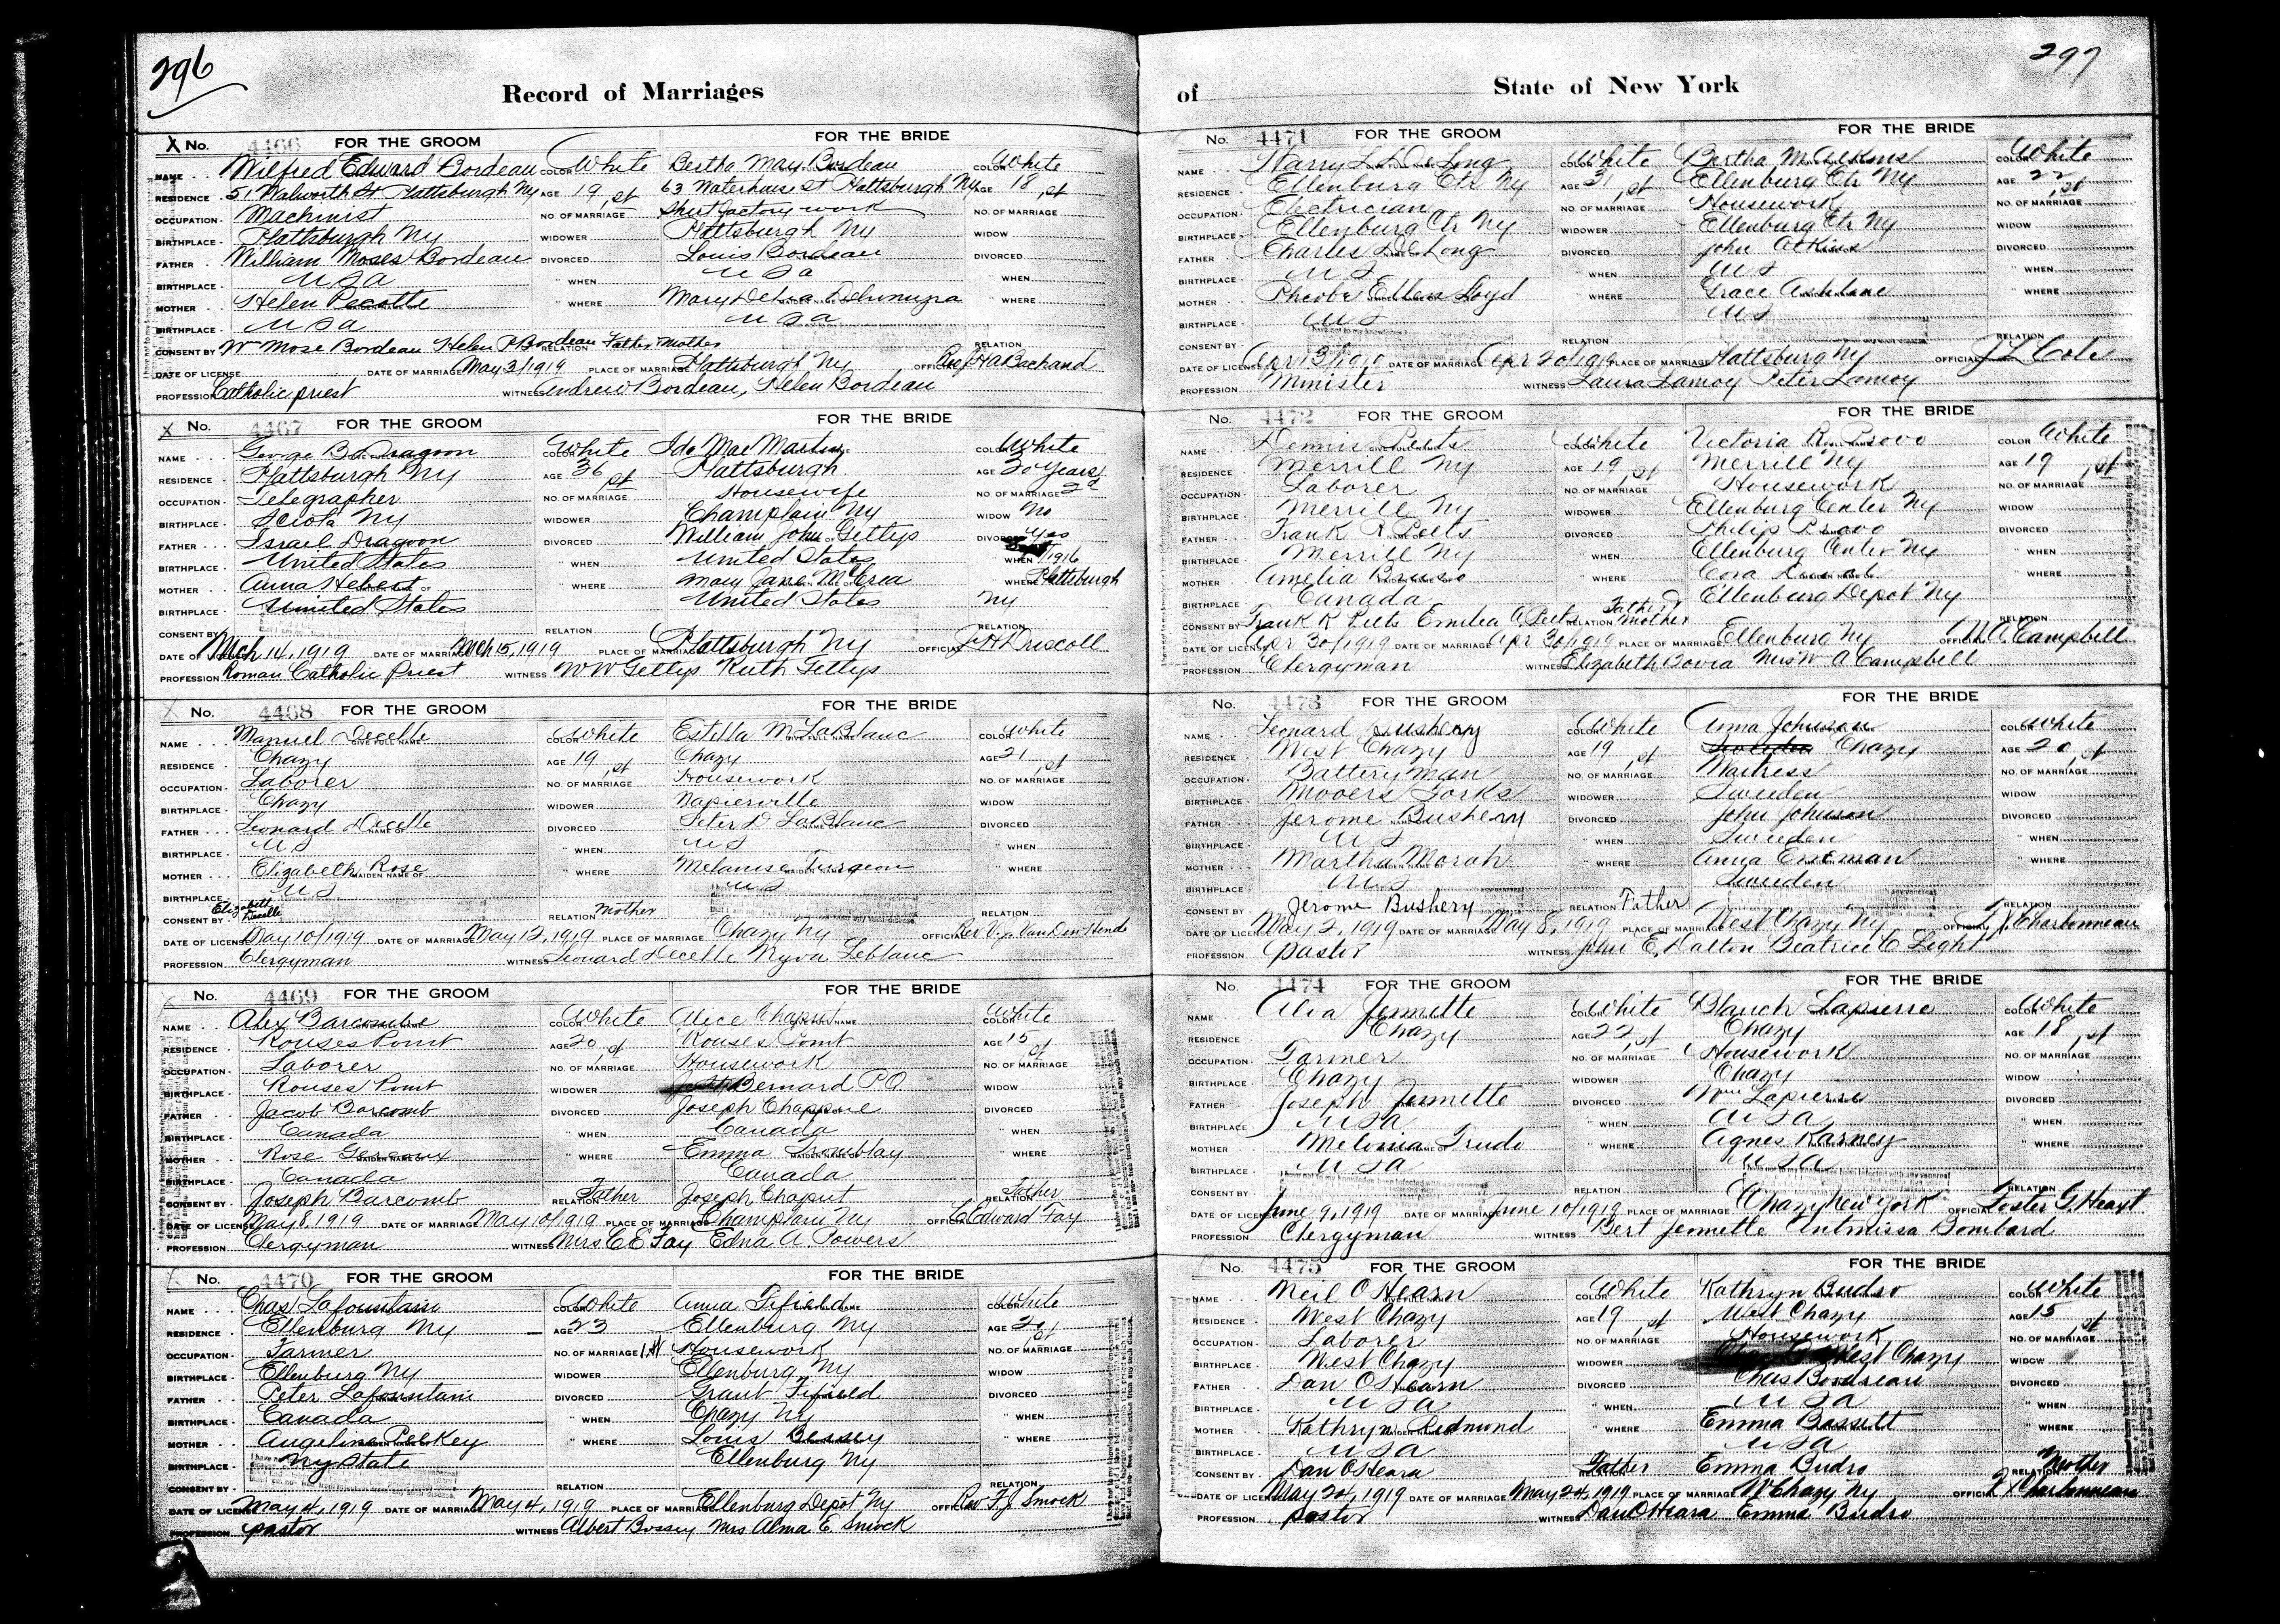 296
Record of Marriages
X No. 4466 FOR THE GROOM FOR THE BRIDE
NAME Wilfred Edward Bordeau COLOR White Bertha May Bordeau COLOR White
RESIDENCE 51 Walworth St Plattsburgh Ny AGE 19 63 Waterhouse St Plattsburgh Ny AGE 18
OCCUPATION Machinist NO. OF MARRIAGE 1st Shirt factory work NO. OF MARRIAGE 1st
BIRTHPLACE Plattsburgh Ny WIDOWER Plattsburgh Ny WIDOW
FATHER William Moses Bordeau DIVORCED Louis Bordeau DIVORCED
BIRTHPLACE U S a " WHEN U S a " WHEN
MOTHER Helen Pecotte " WHERE Mary " WHERE
BIRTHPLACE U S a U S a
CONSENT BY Wm Mose Bordeau Helen P Bordeau RELATION Father Mother RELATION
DATE OF LICENSE DATE OF MARRIAGE May 3/1919 PLACE OF MARRIAGE Plattsburgh Ny OFFICIAL Bachand
PROFESSION Catholic priest WITNESS Andrew Bordeau, Helen Bordeau
X No. 4467 FOR THE GROOM FOR THE BRIDE
NAME George B Dragoon COLOR White Ida Mae Martin COLOR White
RESIDENCE Plattsburgh Ny AGE 36 Plattsburgh AGE 30 Years
OCCUPATION Telegrapher NO. OF MARRIAGE 1st Housewife NO. OF MARRIAGE 2d
BIRTHPLACE Sciota Ny WIDOWER Champlain Ny WIDOW No
FATHER Israel Dragoon DIVORCED William John Gettys DIVORCED Yes
BIRTHPLACE United States " WHEN United States WHEN 1916
MOTHER Anna Hebert " WHERE Mary Jane McCrea WHERE Plattsburgh
BIRTHPLACE United States United States Ny
CONSENT BY RELATION RELATION
DATE OF LICENSE Mch 14, 1919 DATE OF MARRIAGE Mch 15, 1919 PLACE OF MARRIAGE Plattsburgh Ny OFFICIAL J H Driscoll
PROFESSION Roman Catholic Priest WITNESS W W Gettys Ruth Gettys
X No. 4468 FOR THE GROOM FOR THE BRIDE
NAME Manuel Decelle COLOR White Estella M LaBlanc COLOR White
RESIDENCE Chazy AGE 19 Chazy AGE 21
OCCUPATION Laborer NO. OF MARRIAGE 1st Housework NO. OF MARRIAGE 1st
BIRTHPLACE Chazy WIDOWER Napierville WIDOW
FATHER Leonard Decelle DIVORCED Peter D LaBlanc DIVORCED
BIRTHPLACE U S " WHEN U S " WHEN
MOTHER Elizabeth Rose " WHERE Melanise Turgeon WHERE
BIRTHPLACE U S U S
CONSENT BY Elizabeth Decelle RELATION Mother RELATION
DATE OF LICENSE May 10/1919 DATE OF MARRIAGE May 12, 1919 PLACE OF MARRIAGE Chazy Ny OFFICIAL Rev V.j. Van Den Hende
PROFESSION Clergyman WITNESS Leonard Decelle Nyva Leblanc
X No. 4469 FOR THE GROOM FOR THE BRIDE
NAME Alex Barcombe COLOR White Alice Chaput COLOR White
RESIDENCE Rouses Point AGE 20 Rouses Point AGE 15
OCCUPATION Laborer NO. OF MARRIAGE 1st Housework NO. OF MARRIAGE 1st
BIRTHPLACE Rouses Point WIDOWER Bernard PQ WIDOW
FATHER Jacob Barcomb DIVORCED Joseph Chappue DIVORCED
BIRTHPLACE Canada " WHEN Canada " WHEN
MOTHER Rose " WHERE Emma Tromblay " WHERE
BIRTHPLACE Canada Canada
CONSENT BY Joseph Barcomb RELATION Father Joseph Chaput RELATION Father
DATE OF LICENSE May 8, 1919 DATE OF MARRIAGE May 10/1919 PLACE OF MARRIAGE Champlain Ny OFFICIAL C Edward Fay
PROFESSION Clergyman WITNESS Mrs C E Fay Edna A. Powers
X No. 4470 FOR THE GROOM FOR THE BRIDE
NAME Chas Lafountain COLOR White Anna Fifield COLOR White
RESIDENCE Ellenburg Ny AGE 23 Ellenburg Ny AGE 20
OCCUPATION Farmer NO. OF MARRIAGE 1st Housework NO. OF MARRIAGE 1st
BIRTHPLACE Ellenburg Ny WIDOWER Ellenburg Ny WIDOW
FATHER Peter Lafountain DIVORCED Grant Fifield DIVORCED
BIRTHPLACE Canada " WHEN Chazy Ny " WHEN
MOTHER Angeline Pelkey " WHERE Louis Bessey " WHERE
BIRTHPLACE Ny State Ellenburg Ny
CONSENT BY RELATION RELATION
DATE OF LICENSE May 4, 1919 DATE OF MARRIAGE May 4, 1919 PLACE OF MARRIAGE Ellenburg Depot Ny OFFICIAL Rev F. J. Smock
PROFESSION pastor WITNESS Albert Bossey Mrs Alma E Smock
297
of State of New York
No. 4471 FOR THE GROOM FOR THE BRIDE
NAME Harry L DeLong COLOR White Bertha M Atkins COLOR White
RESIDENCE Ellenburg Ctr Ny AGE 31 Ellenburg Ctr Ny AGE 22
OCCUPATION Electrician NO. OF MARRIAGE 1st Housework NO. OF MARRIAGE 1st
BIRTHPLACE Ellenburg Ctr Ny WIDOWER Ellenburg Ctr Ny WIDOW
FATHER Charles DeLong DIVORCED John Atkins DIVORCED
BIRTHPLACE U S " WHEN U S " WHEN
MOTHER Pheobe Ellen Loyd " WHERE Grace Ashlane " WHERE
BIRTHPLACE U S U S
CONSENT BY RELATION RELATION
DATE OF LICENSE Apr 13/1919 DATE OF MARRIAGE Apr 20/1919 PLACE OF MARRIAGE Plattsburg Ny OFFICIAL J L Cole
PROFESSION Minister WITNESS Laura Lamoy Peter Lamoy
No. 4472 FOR THE GROOM FOR THE BRIDE
NAME Dennis Peets COLOR White Victoria R Provo COLOR White
RESIDENCE Merrill Ny AGE 19 Merrill Ny AGE 19
OCCUPATION Laborer NO. OF MARRIAGE 1st Housework NO. OF MARRIAGE 1st
BIRTHPLACE Merrill Ny WIDOWER Ellenburg Center Ny WIDOW
FATHER Frank R Peets DIVORCED Philip Provo DIVORCED
BIRTHPLACE Merrill Ny " WHEN Ellenburg Center Ny " WHEN
MOTHER Amelia Bruso " WHERE Cora " WHERE
BIRTHPLACE Canada Ellenburg Depot Ny
CONSENT BY Frank R Peets Emelia A. Peets RELATION Father Mother RELATION
DATE OF LICENSE Apr 30/1919 DATE OF MARRIAGE Apr 30/1919 PLACE OF MARRIAGE Ellenburg Ny OFFICIAL W.A. Campbell
PROFESSION Clergyman WITNESS Elizabeth Bovia Mrs W A Campbell
No. 4473 FOR THE GROOM FOR THE BRIDE
NAME Leonard Bushery COLOR White Anna Johnson COLOR White
RESIDENCE West Chazy AGE 19 Chazy AGE 20
OCCUPATION Battery man NO. OF MARRIAGE 1st Waitress NO. OF MARRIAGE 1st
BIRTHPLACE Mooers Forks WIDOWER Sweden WIDOW
FATHER Jerome Bushery DIVORCED John Johnson DIVORCED
BIRTHPLACE U S " WHEN Sweden " WHEN
MOTHER Martha Morah " WHERE Anna " WHERE
BIRTHPLACE U S Sweden
CONSENT BY Jerome Bushery RELATION Father RELATION
DATE OF LICENSE May 2, 1919 DATE OF MARRIAGE May 8, 1919 PLACE OF MARRIAGE West Chazy Ny OFFICIAL F X Charbonneau
PROFESSION pastor WITNESS John E. Dalton Beatrice C Light
No. 4474 FOR THE GROOM FOR THE BRIDE
NAME Alva Jennette COLOR White Blanch Lapierre COLOR White
RESIDENCE Chazy AGE 22 Chazy AGE 18
OCCUPATION Farmer NO. OF MARRIAGE 1st Housework NO. OF MARRIAGE 1st
BIRTHPLACE Chazy WIDOWER Chazy WIDOW
FATHER Joseph Jennette DIVORCED Wm Lapierre DIVORCED
BIRTHPLACE U S a " WHEN U S a " WHEN
MOTHER Melonia Trudo " WHERE Agnes Karney " WHERE
BIRTHPLACE U S a U S a
CONSENT BY RELATION RELATION
DATE OF LICENSE June 9, 1919 DATE OF MARRIAGE June 10/1919 PLACE OF MARRIAGE Chazy New York OFFICIAL Foster G. Heaxt
PROFESSION Clergyman WITNESS Bert Jennette Antmissa Bombard
No. 4475 FOR THE GROOM FOR THE BRIDE
NAME Neil O Hearn COLOR White Kathryn Budro COLOR White
RESIDENCE West Chazy AGE 19 West Chazy AGE 15
OCCUPATION Laborer NO. OF MARRIAGE 1st Housework NO. OF MARRIAGE 1st
BIRTHPLACE West Chazy WIDOWER West Chazy WIDOW
FATHER Dan O Hearn DIVORCED Chas Boudreau DIVORCED
BIRTHPLACE U S a " WHEN U S a " WHEN
MOTHER Kathryn Redmond " WHERE Emma Bassett " WHERE
BIRTHPLACE U S a U S a
CONSENT BY Dan O Heara RELATION Father Emma Budro RELATION Mother
DATE OF LICENSE May 24, 1919 DATE OF MARRIAGE May 24, 1919 PLACE OF MARRIAGE W Chazy Ny OFFICIAL F X Charbonneau
PROFESSION pastor WITNESS Dan O Heara Emma Budro